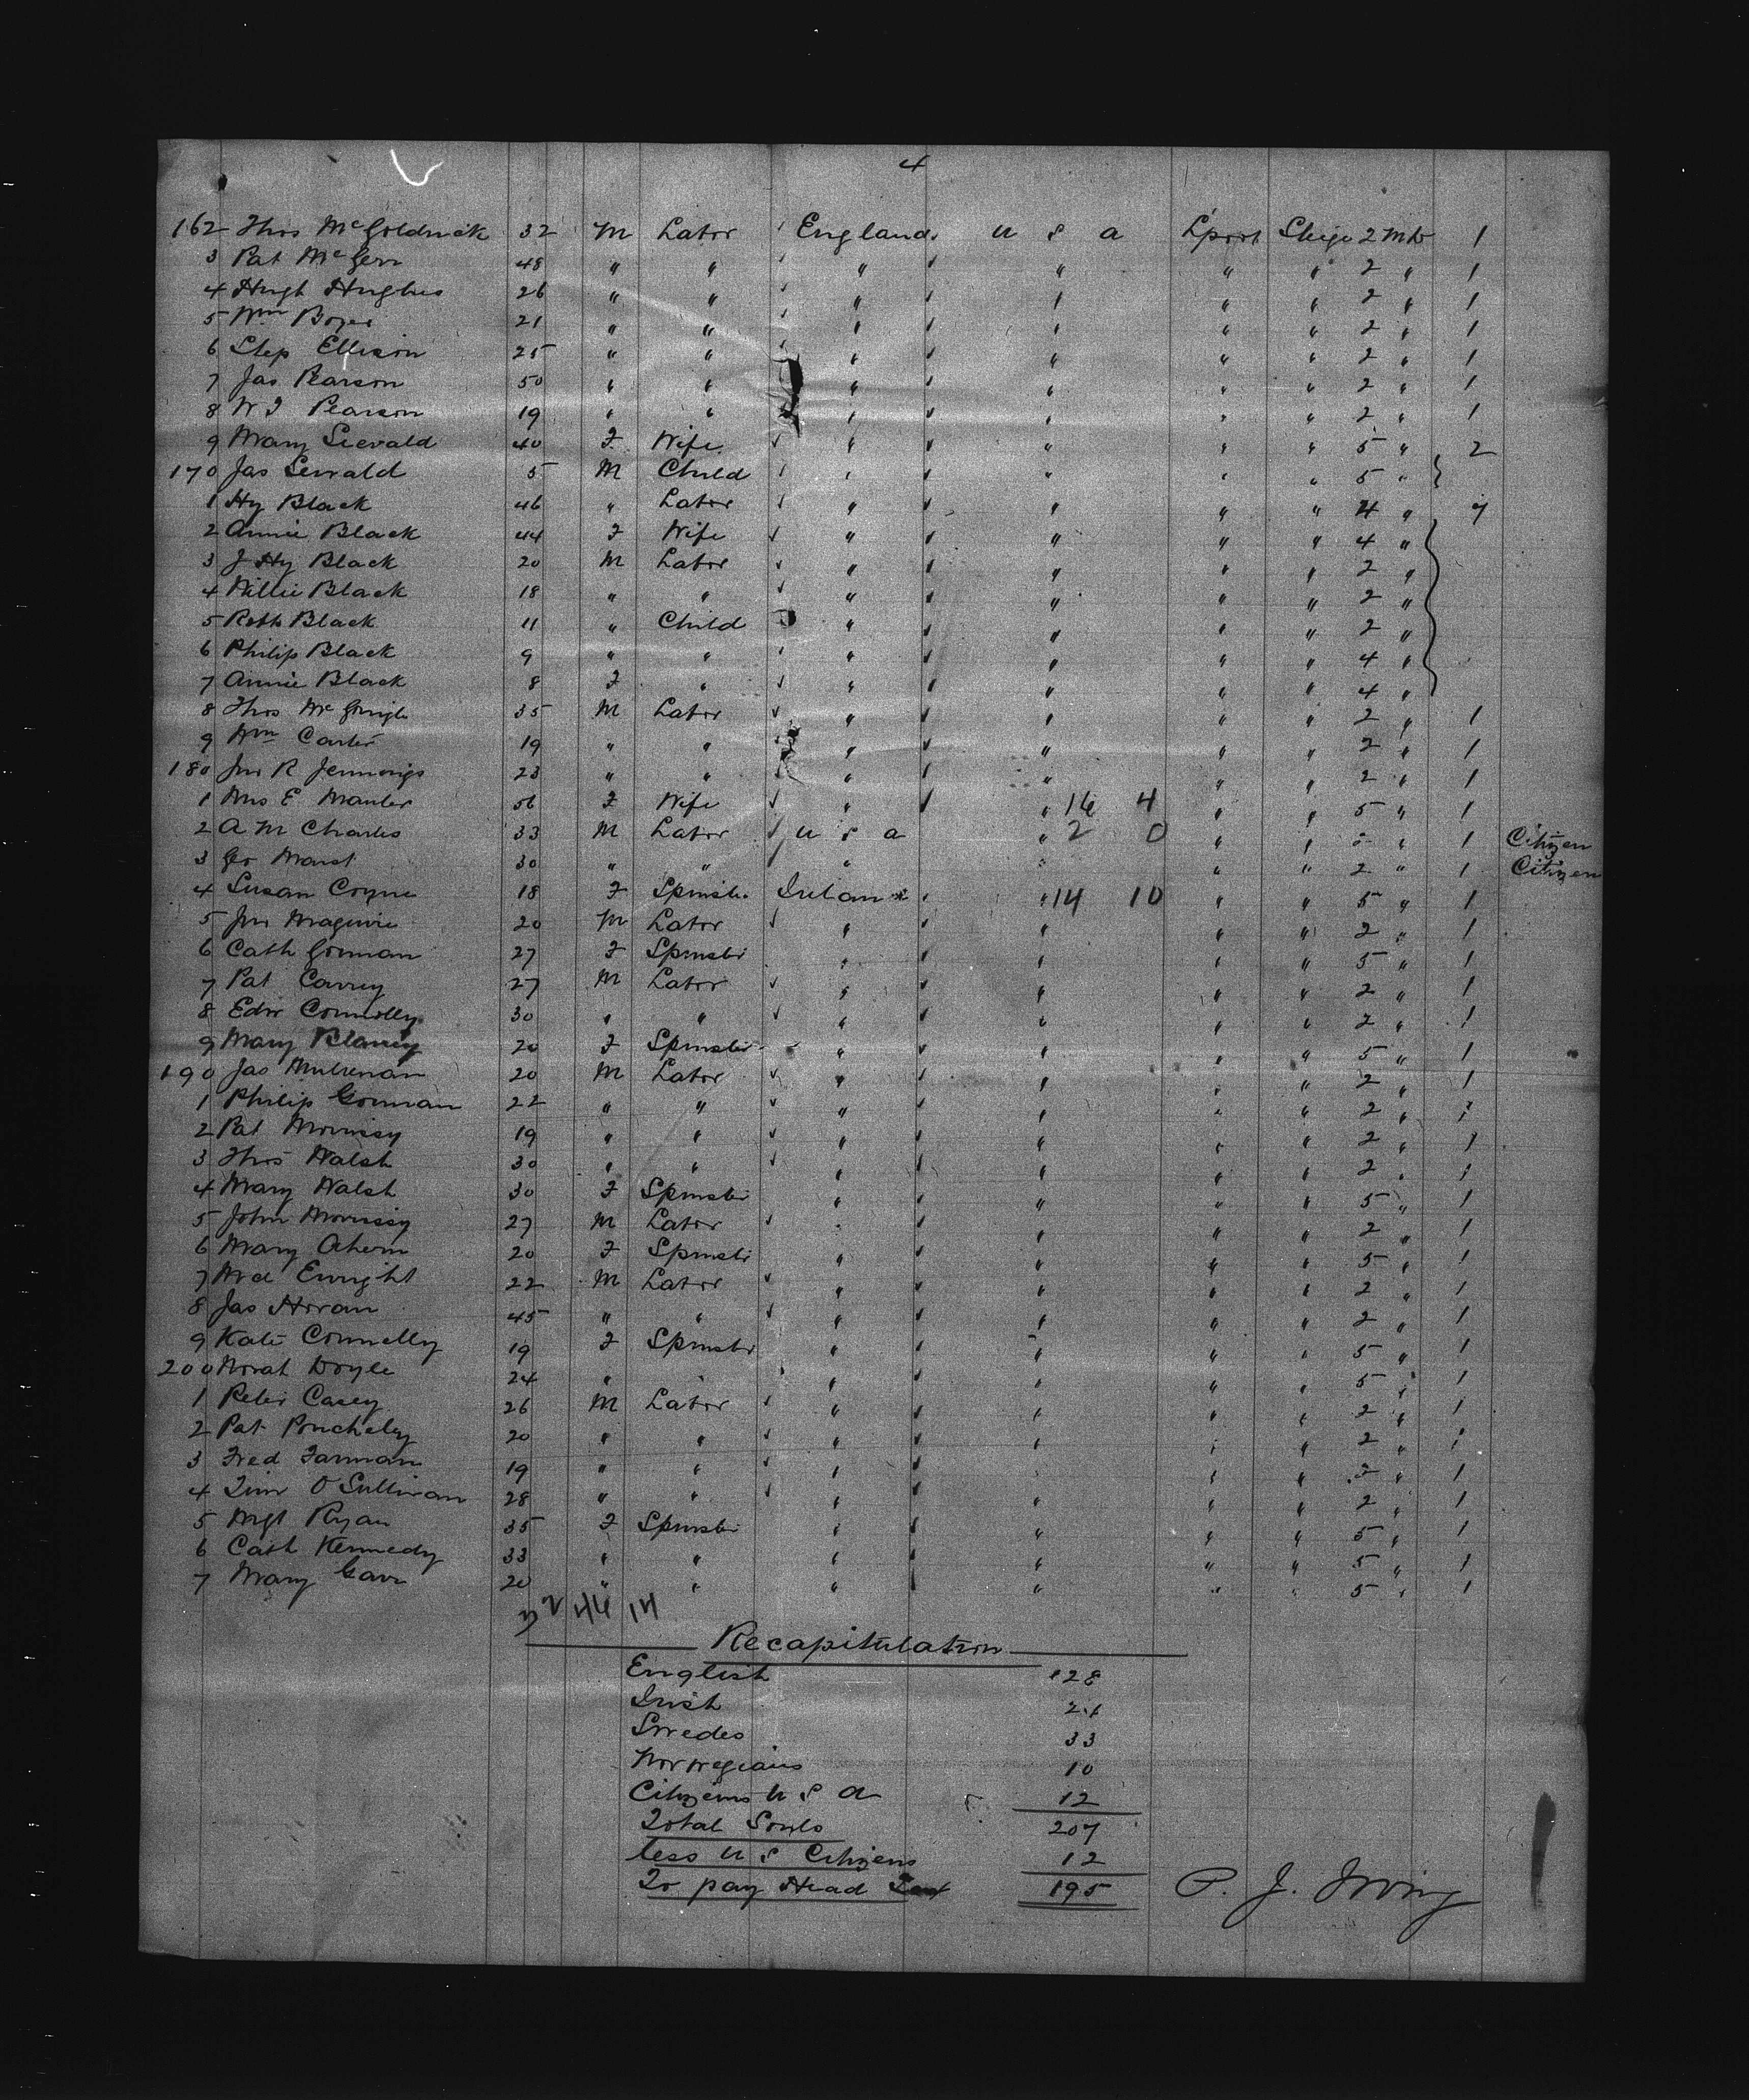 4
162 Thos McGoldrick 32 M Labor England U S A L'pool Stege 2 Mts 1
3 Pat McGerr 48 " " " " " " 2 " 1
4 Hugh Hughes 26 " " " " " " 2 " 1
5 Wm Boyes 21 " " " " " " 2 " 1
6 Step Ellison 25 " " " " " " 2 " 1
7 Jas Pearson 50 " " " " " " 2 " 1
8 W J Pearson 19 " " " " " " 2 " 1
9 Mary 40 F Wife " " " " 5 " 2
170 Jas 5 M Child " " " " 5 "
1 Hy Black 46 " Labor " " " " 4 " 7
2 Annie Black 44 F Wife " " " " 4 "
3 J Hy Black 20 M Labor " " " " 2 "
4 Willie Black 18 " " " " " " 2 "
5 Robt Black 11 " Child " " " " 2 "
6 Philip Black 9 " " " " " " 4 "
7 Annie Black 8 F " " " " " 4 "
8 Thos 35 M Labor " " " " 2 " 1
9 Wm Carter 19 " " " " " " 2 " 1
180 Jno R Jennings 23 " " " " " " 2 " 1
1 Mrs E 56 F Wife " " 16 4 " " 5 " 1
2 A M Charles 33 M Labor U S A " 2 0 " " " 1 Citizen
3 Geo 30 " " " " " " 2 " 1 Citizen
4 Susan Coyne 18 F Spinstr Irelan " 14 10 " " 5 " 1
5 Jno Maguire 20 M Labor " " " " 2 " 1
6 Cath Gorman 27 F Spinstr " " " " 5 " 1
7 Pat 27 M Labor " " " " 2 " 1
8 Edw Connolly 30 " " " " " " 2 " 1
9 Mary Blaney 20 F Spinster " " " " 5 " 1
190 Jas 20 M Labor " " " " 2 " 1
1 Philip Gorman 22 " " " " " " 2 " 1
2 Pat Morrissy 19 " " " " " " 2 " 1
3 Thos Walsh 30 " " " " " " 2 " 1
4 Mary Walsh 30 F Spinstr " " " " 5 " 1
5 John Morrissy 27 M Labor " " " " 2 " 1
6 Mary Ahern 20 F Spinstr " " " " 5 " 1
7 Enright 22 M Labor " " " " 2 " 1
8 Jas Horan 45 " " " " " " 2 " 1
9 Kate Connelly 19 F Spinstr " " " " 5 " 1
200 Norah Doyle 24 " " " " " " 5 " 1
1 Peter Casey 26 M Labor " " " " 2 " 1
2 Pat 20 " " " " " " 2 " 1
3 Fred 19 " " " " " 2 " 1
4 Tim O'Sullivan 28 " " " " " " 2 " 1
5 Mgt Ryan 35 F Spinstr " " " " 5 " 1
6 Cath Kennedy 33 " " " " " " 5 " 1
7 Mary 20 " " " " " " 5 " 1
46 14
Recapitulation
English 128
Irish 24
Swedes 33
Norwegians 10
Citizens U S A 12
Total Souls 207
less U S Citizens 12
To pay Head Tax 195 P. J. Irving